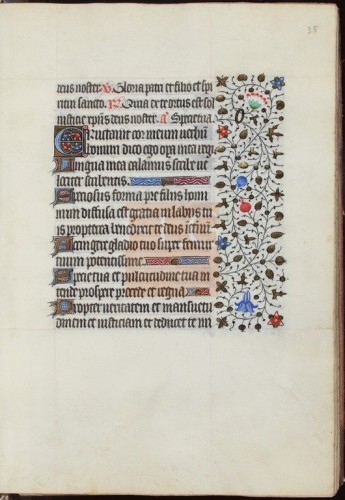 35
deus noster. V. Gloria patri et filio et spi
ritui sancto. R. Quia ex te ortus est sol
iusticie xpristus deus noster. a Specie tua.
Eructauit cor meum uerbum
bonum dico ego opera mea regi
Lingua mea calamus scribe ue
lociter scribentis.
Speciosus forma pre filiis homi
num diffusa est gratia in labiis tu
is propterea benedixit te deus in eternum
Accingere gladio tuo super femur
tuum potentissime.
Specie tua et pulcritudine tua in
tende prospere procede et regna.
Propter ueritatem et mansuetu
dinem et iusticiam et deducet te mi